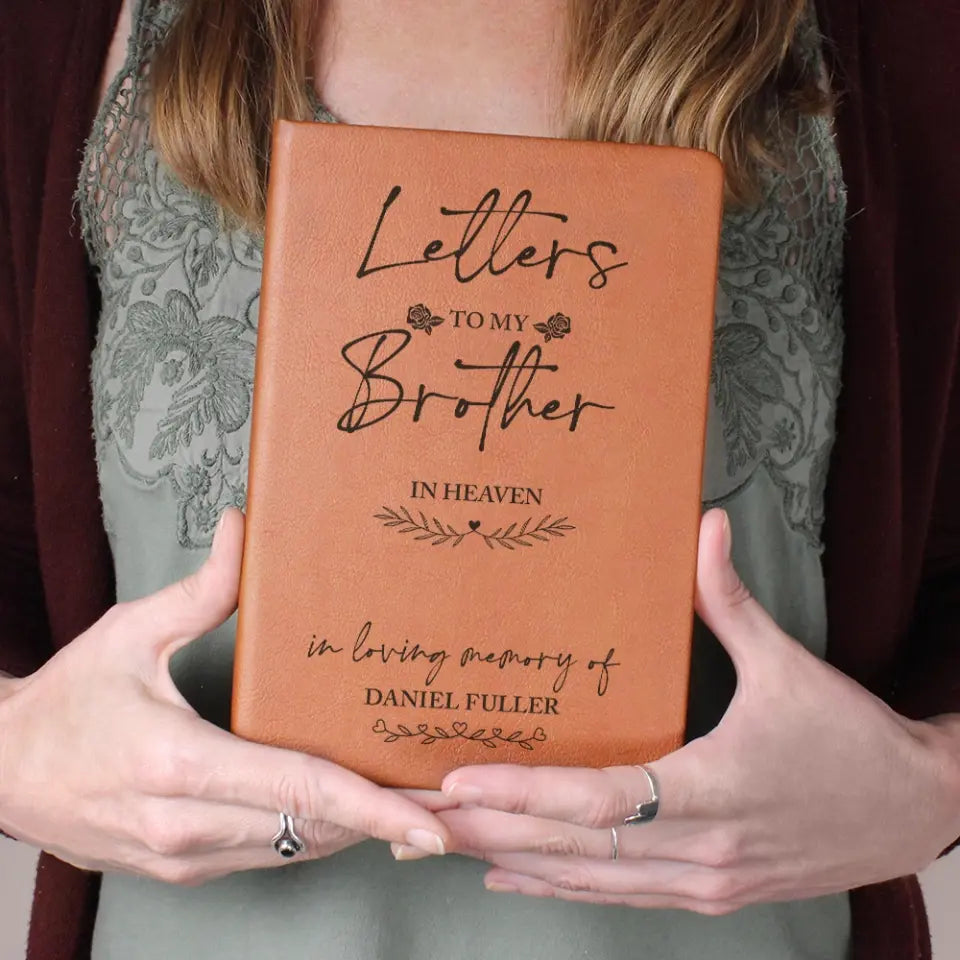 Letters
TO MY
Brother
IN HEAVEN
in loving memory of
DANIEL FULLER